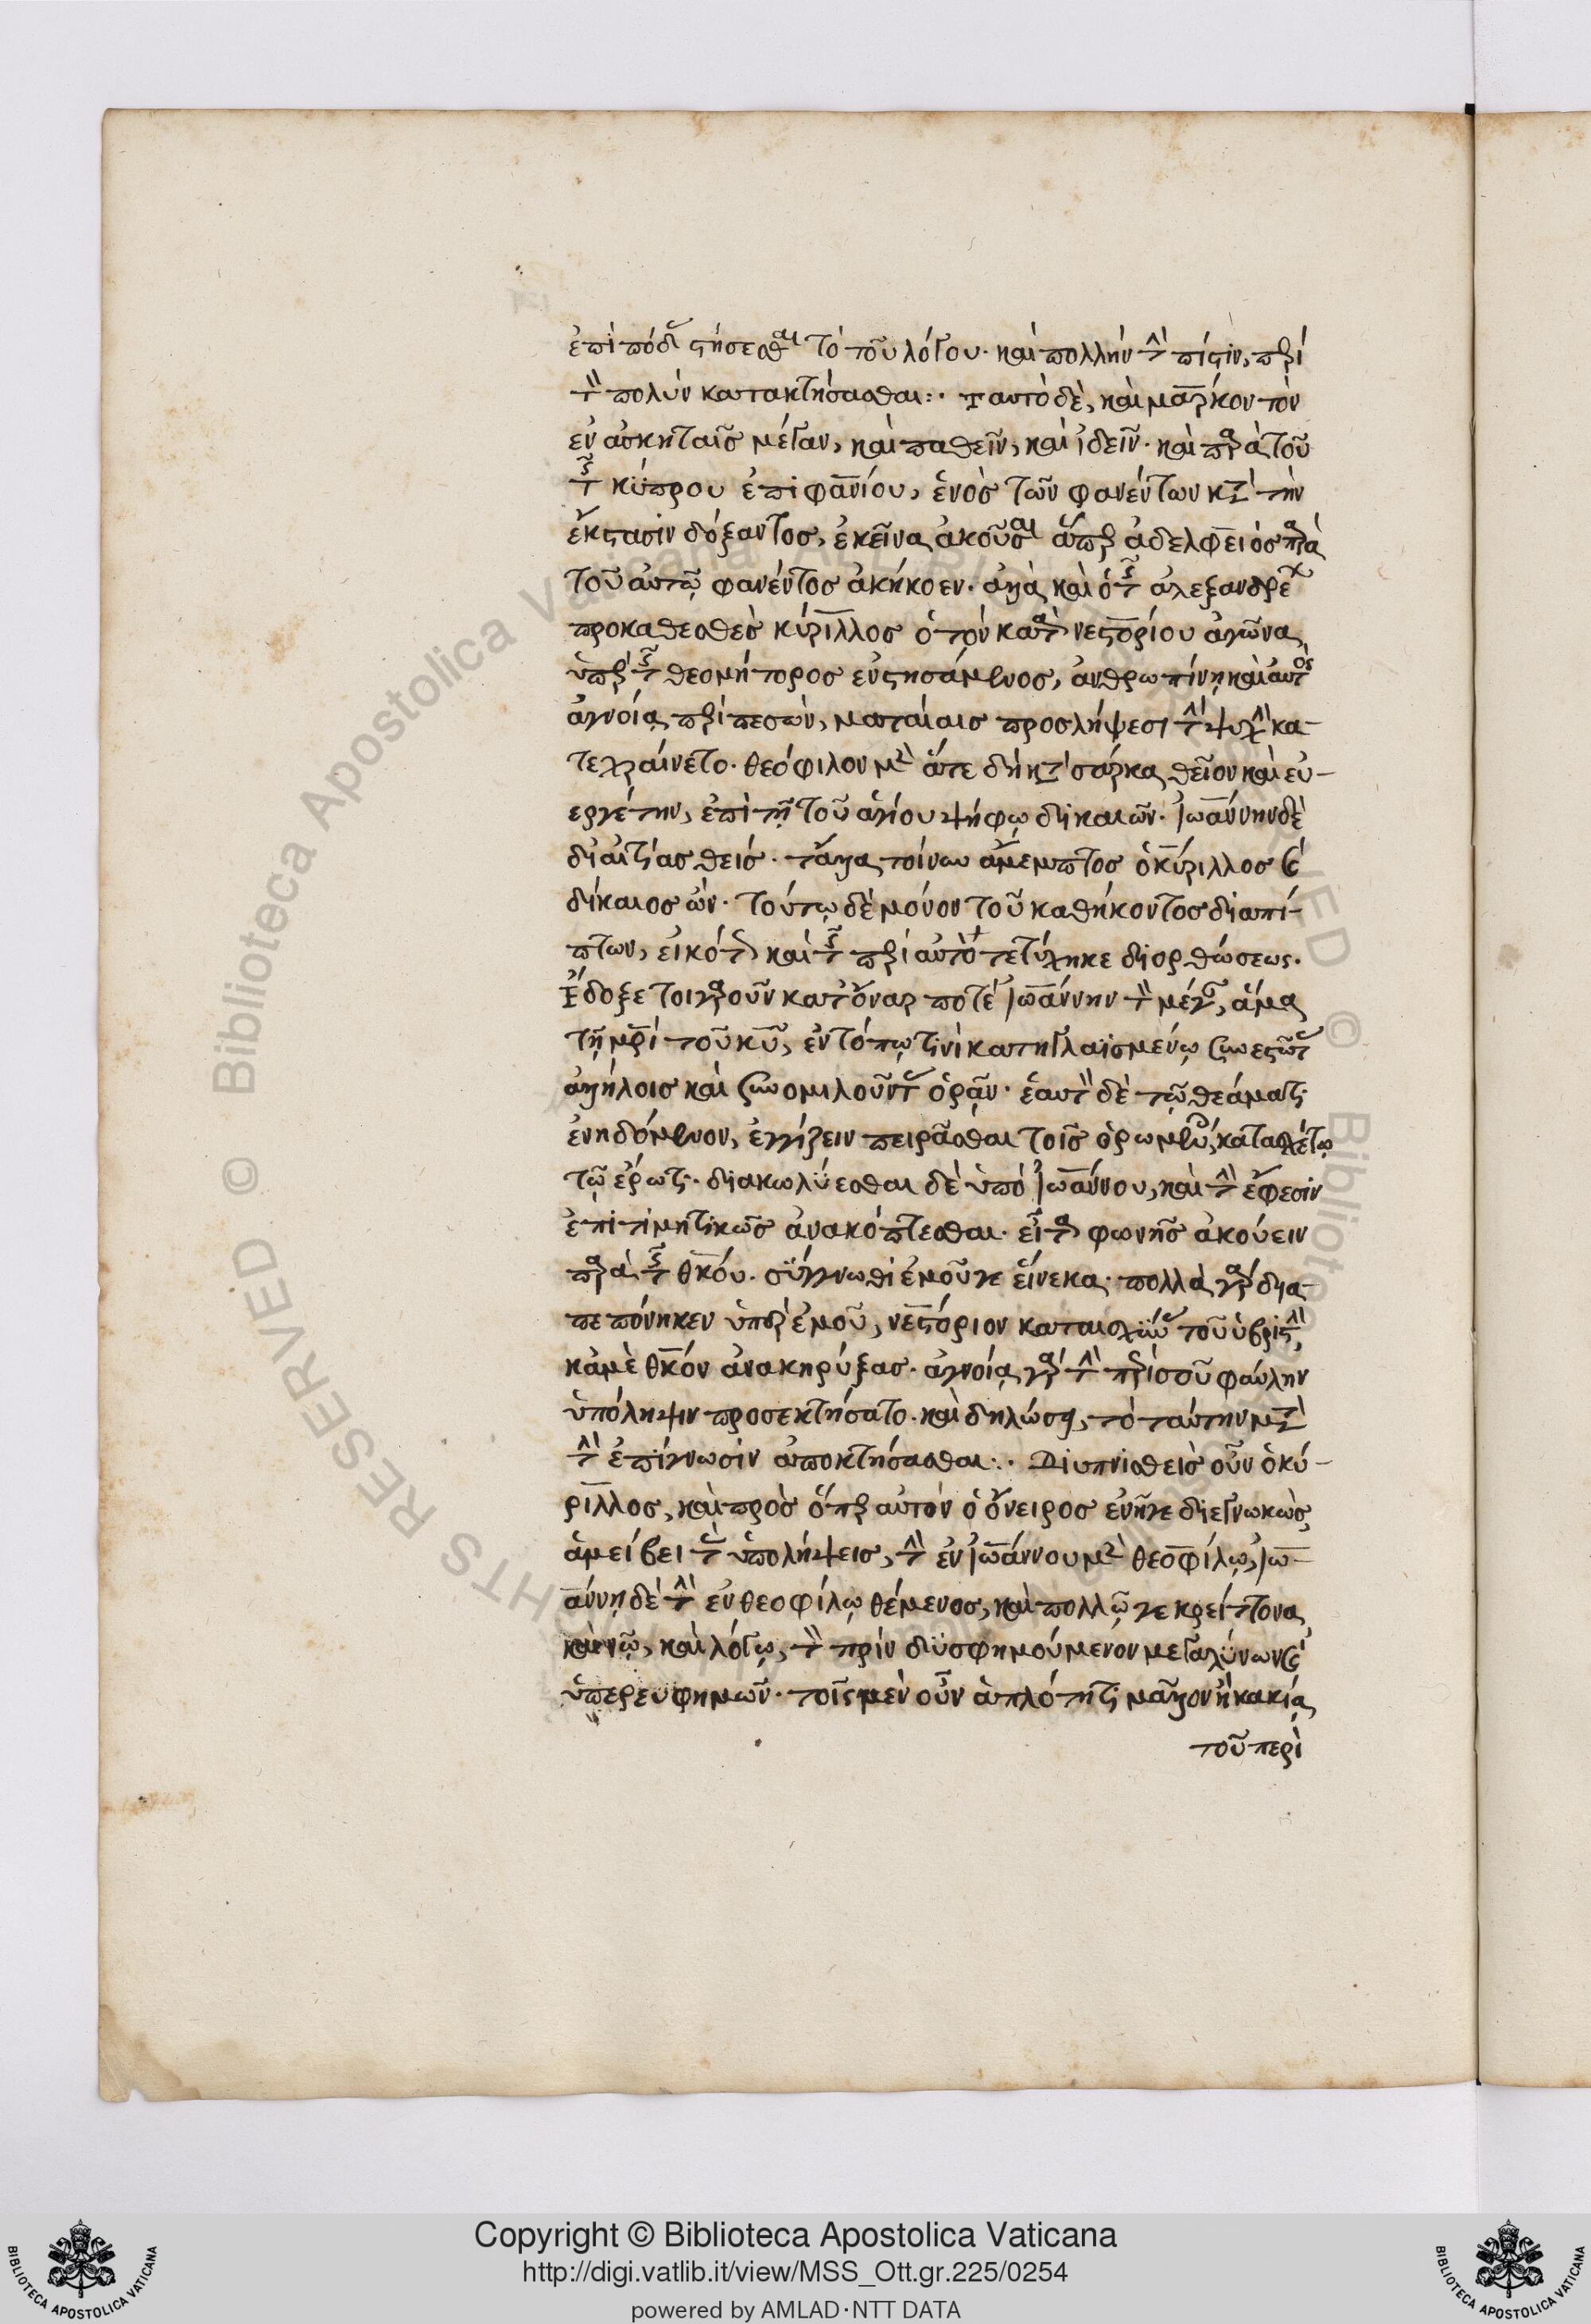 ἐπὶ πόδας στήσεσθαι τὸ τοῦ λόγου· καὶ πολλὴν τὴν πίστιν, περὶ
τὸν πολὺν κατακτήσασθαι:· Ταυτὸ δὲ, καὶ μάρκον τὸν
ἐν ἀσκηταῖς μέγαν, καὶ παθεῖν, καὶ ἰδεῖν· καὶ παρὰ τοῦ
τῆς κύπρου ἐπιφανίου, ἑνὸς τῶν φανέντων κατὰ τὴν
ἔκστασιν δόξαντος, ἐκεῖνα ἀκοῦσαι ἅπερ ἀδελφειὸς παρὰ
τοῦ αὐτῷ φανέντος ἀκήκοεν· ἀλλὰ καὶ ὁ τῆς ἀλεξανδρείας
προκαθεσθεὶς κύριλλος ὁ τὸν κατὰ νεστορίου ἀγῶνα
ὑπὲρ τῆς θεομήτορος ἐνστησάμενος, ἀνθρωπίνῃ καὶ αὐτὸς
ἀγνοίᾳ περιπεσὼν, ματαίαις προσλήψεσι τὴν ψυχὴν κα-
τεχραίνετο· θεόφιλον μὲν ἅτε δὴ κατὰ σάρκα θεῖον καὶ εὐ-
εργέτην, ἐπὶ τῇ τοῦ ἁγίου ψήφῳ δικαιῶν· Ἰωάννην δὲ
δι αἰτίας θείς· τἄλλα τοίνυν ἄμεμπτος ὁ κύριλλος καὶ
δίκαιος ὤν· τούτῳ δὲ μόνον τοῦ καθήκοντος διαπί-
πτων, εἰκότως καὶ τῆς περὶ αὐτὸ τετύχηκε διορθώσεως·
Ἔδοξε τοιγαροῦν κατ ὄναρ ποτὲ Ἰωάννην τὸν μέγαν, ἅμα
τῇ μητρὶ τοῦ κυ, ἐν τόπῳ τινὶ κατηγλαϊσμένῳ συνεστῶτας
ἀλλήλοις καὶ συνομιλοῦντας ὁρᾶν· ἑαυτὸν δὲ τῷ θεάματι
ἐνηδόμενον, ἐγγίζειν πειρᾶσθαι τοῖς ὁρωμένοις,
τῷ ἔρωτι· διακωλύεσθαι δὲ ὑπὸ Ἰωάννου, καὶ τὴν ἔφεσιν
ἐπιτιμητικῶς ἀνακόπτεσθαι· εἶτα φωνῆς ἀκούειν
παρὰ τῆς θκόυ· σύγγνωθι ἐμοῦ γε εἵνεκα· πολλὰ γὰρ δια-
πεπόνηκεν ὑπὲρ ἐμοῦ, νεστόριον καταισχύνας τοῦ ὑβριστὴν,
κἀμὲ θκόν ἀνακηρύξας· ἀγνοίᾳ γὰρ τὴν περὶ σοῦ φαύλην
ὑπόληψιν προσεκτήσατο· καὶ δηλώσῃ, τὸ ταύτην μετὰ
τὴν ἐπίγνωσιν ἀποκτήσασθαι:· Διυπνισθεὶς οὖν ὁ κύ-
ριλλος, καὶ πρὸς ὅπερ αὐτὸν ὁ ὄνειρος ἐνῆγε διεγνωκὼς
ἀμείβει τὰς ὑπολήψεις, τὴν ἐν Ἰωάννου μὲν θεοφίλῳ, Ἰω-
άννῃ δὲ τὴν ἐν θεοφίλῳ θέμενος, καὶ πολλῷ γε κρείττονα
καὶ νῷ, καὶ λόγῳ, τὸν πρὶν δυσφημούμενον μεγαλύνων καὶ
ὑπερευφημῶν· τοῖς μὲν οὖν ἁπλότητι μᾶλλον ἢ κακίᾳ
τοῦ περὶ
Copyright © Biblioteca Apostolica Vaticana
http://digi.vatlib.it/view/MSS_Ott.gr.225/0254
powered by AMLAD·NTT DATA